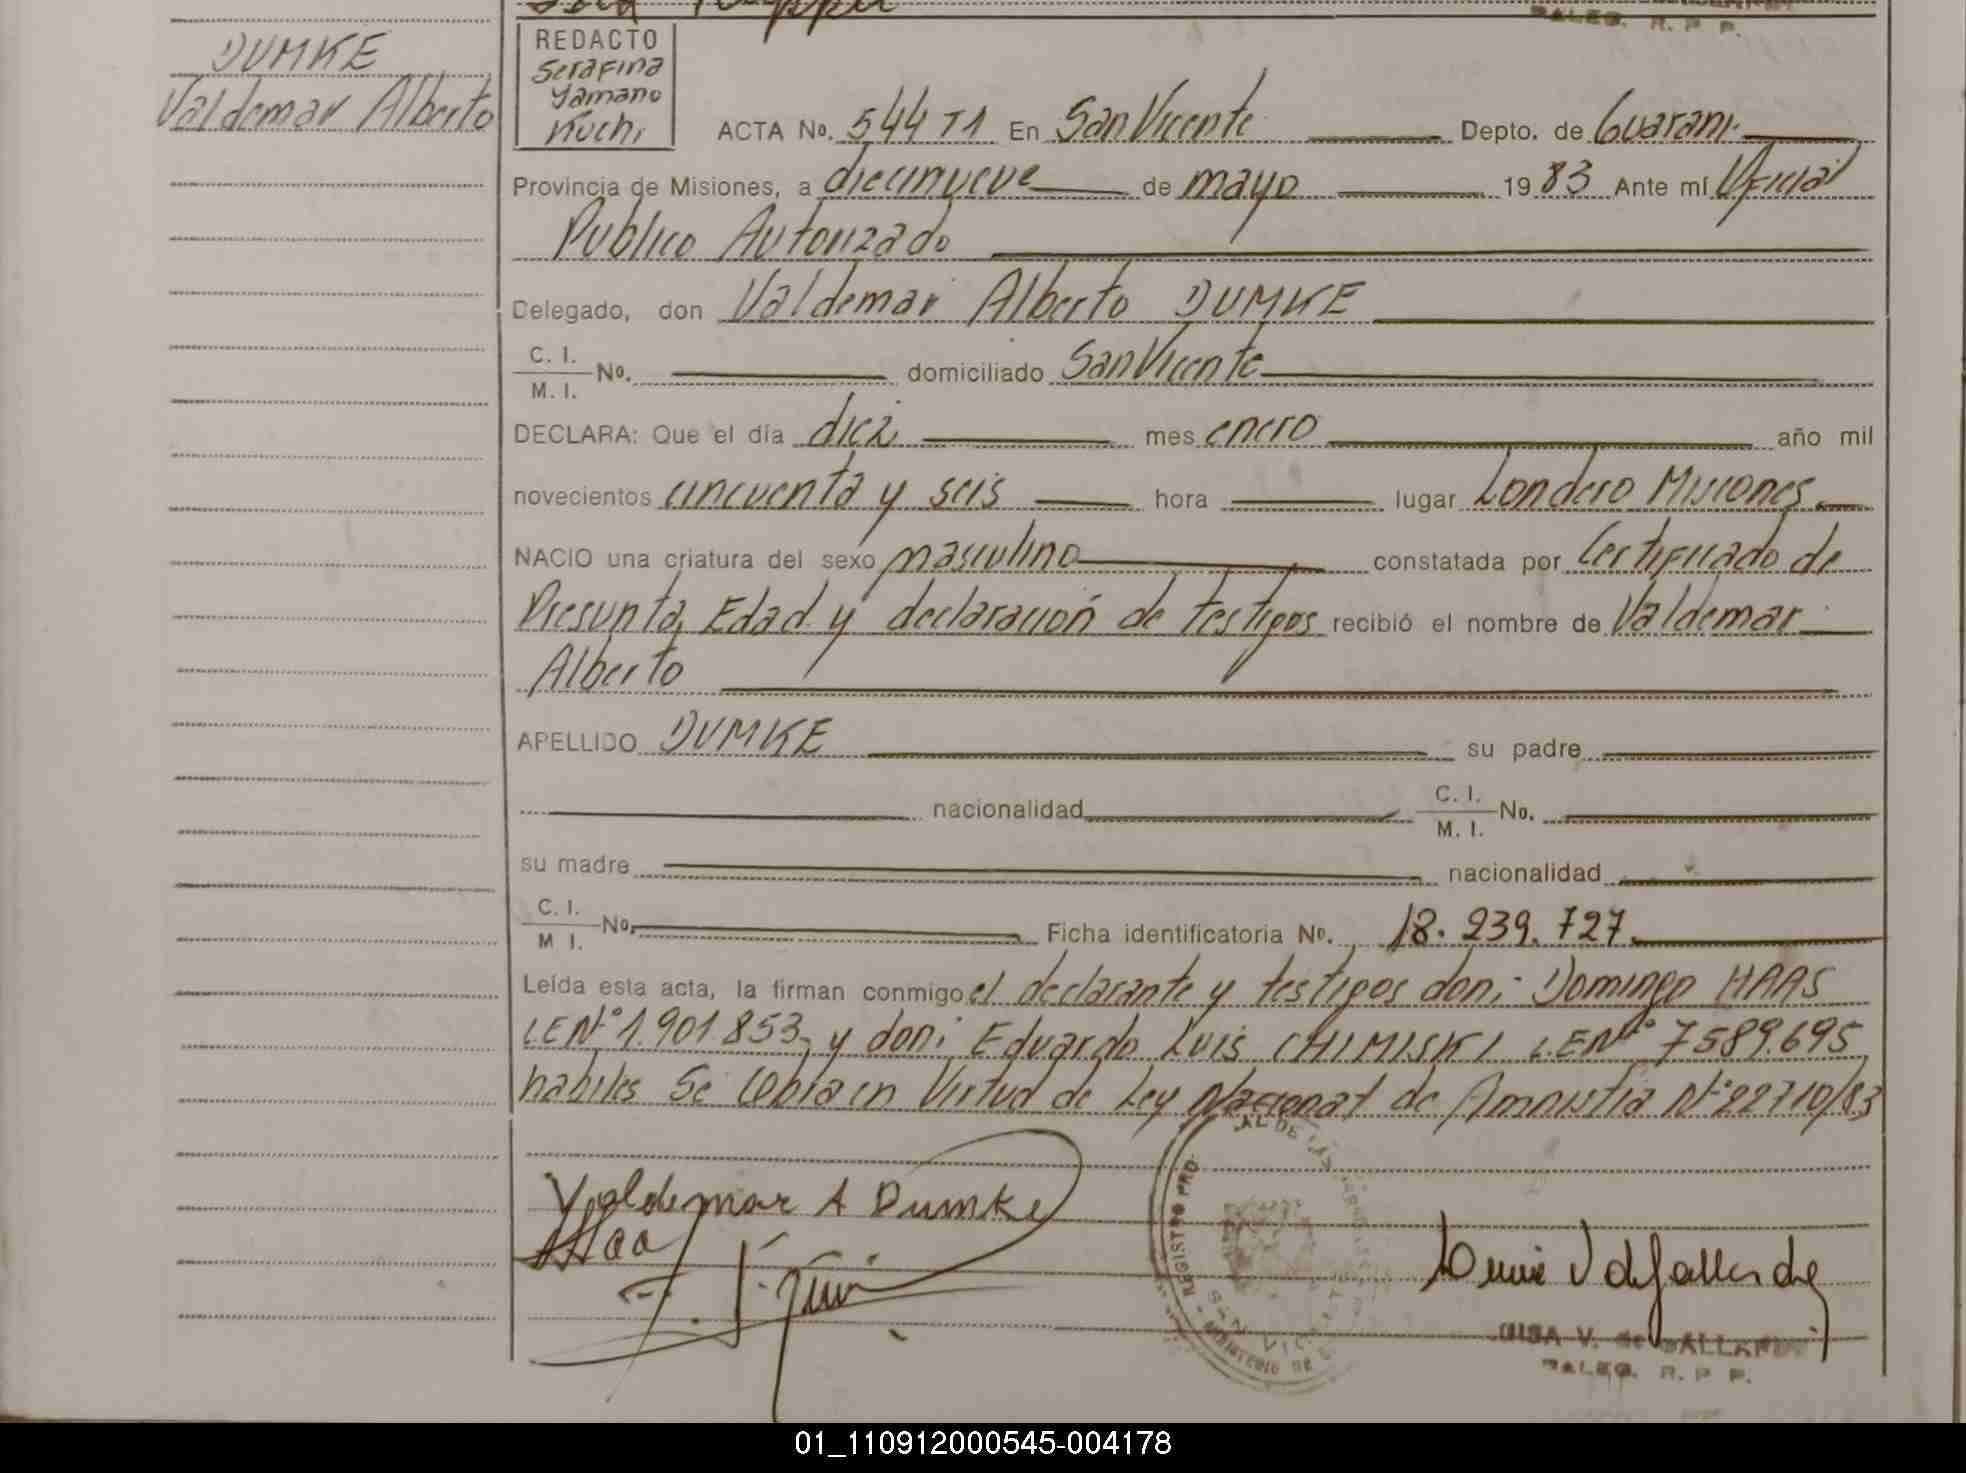 DUMKE
Valdemar Alberto
REDACTO
Serafina
Yamano
Kuchi
ACTA No. 544 T1 En San Vicente Depto. de Guarani
Provincia de Misiones, a diecinueve de mayo 1983 Ante mí Oficial
Publico Autorizado
Delegado, don Valdemar Alberto DUMKE
C. I.
M. I. No. domiciliado San Vicente
DECLARA: Que el día diez mes enero año mil
novecientos cincuenta y seis hora lugar Londero Misiones
NACIO una criatura del sexo masculino constatada por Certificado de
Presunta Edad y declaración de testigos recibió el nombre de Valdemar
Alberto
APELLIDO DUMKE su padre
nacionalidad C. I. M. I. No.
su madre nacionalidad
C. I. M. I. No. Ficha identificatoria No. 18.239.727
Leída esta acta, la firman conmigo el declarante y testigos don: Domingo HAAS
L.E Nº 1.901.853 y don: Eduardo Luis CHIMISKI L.E Nº 7589.695
habiles Se labra en Virtud de Ley Nacional de Amnistia Nº 22710/83
Valdemar A Dumke
R. P. P.
01_110912000545-004178